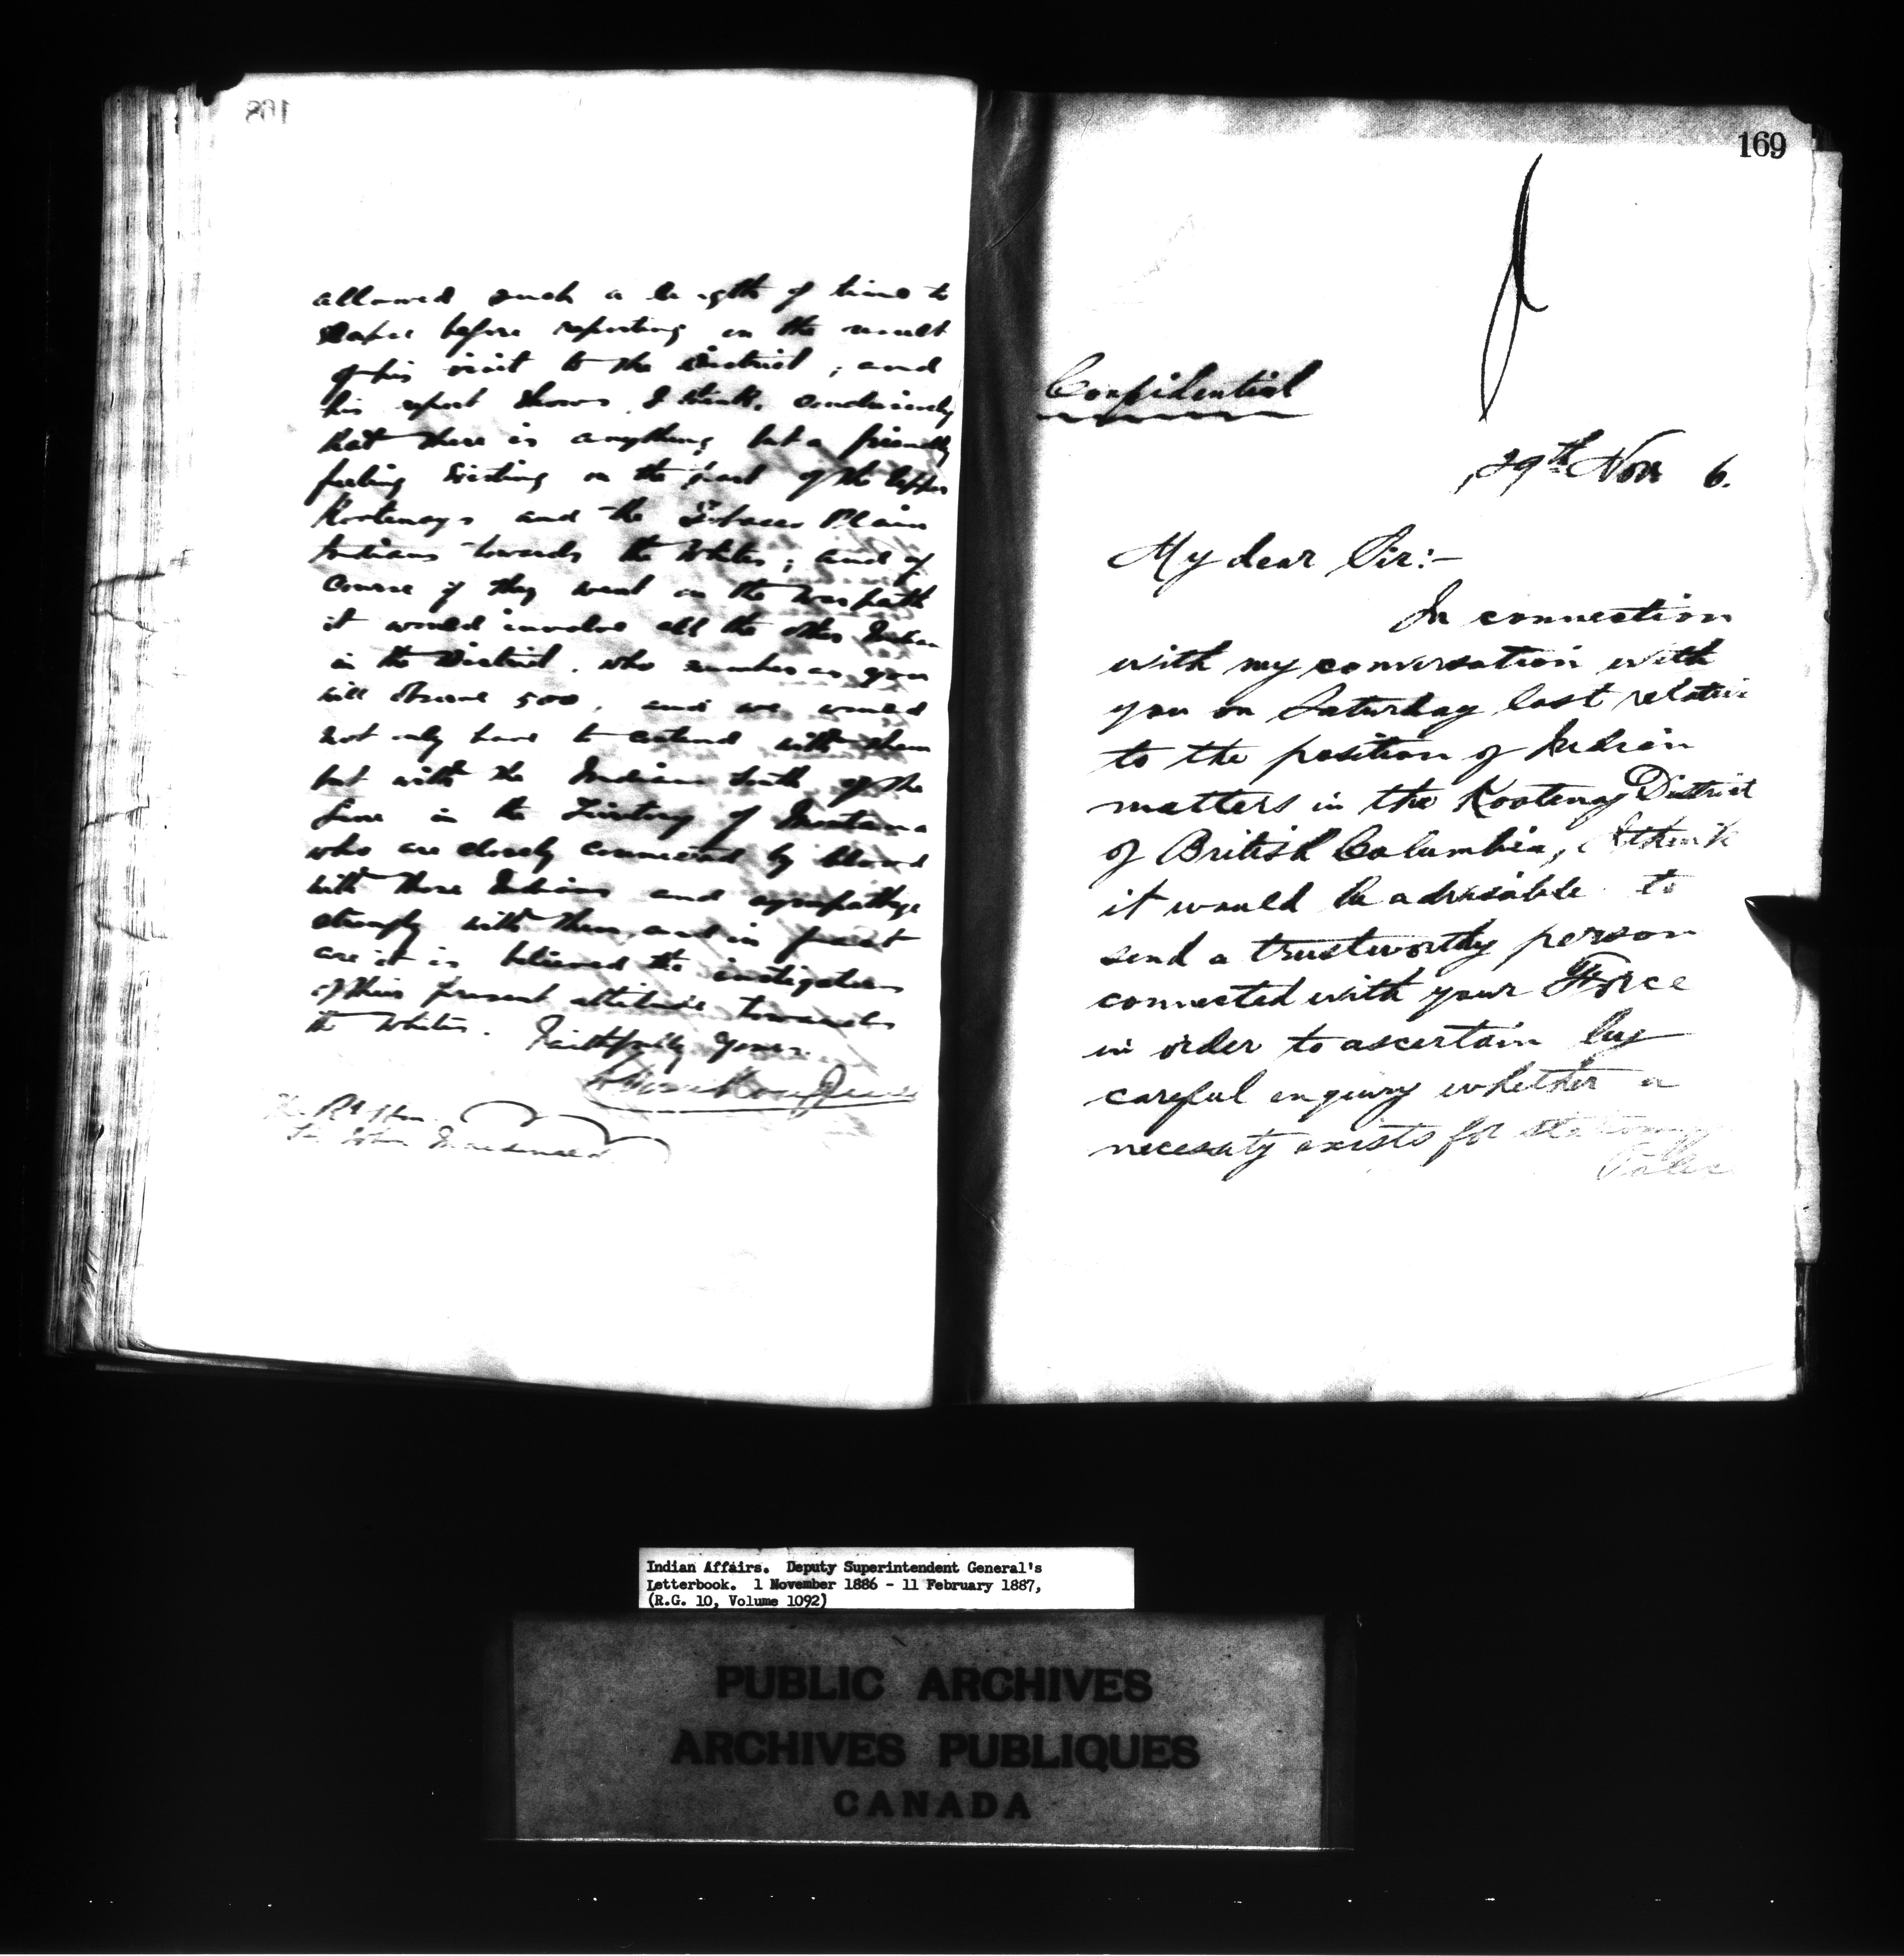 168
allowed such a length of time to
elapse before reporting on the result
of his visit to the District; and
his report shows, I think, conclusively
that there is anything but a friendly
feeling existing on the part of the Upper
Kootenays and the Tobacco Plain
Indians towards the Whites; and of
course if they went on the warpath
it would involve all the other Indians
in the District, who number as you
will observe 500, and we would
not only have to contend with them
but with the Indians South of the
Line in the Territory of Montana
who are closely connected by blood
with these Indians and sympathize
strongly with them and in fact
are it is believed the instigators
of their present attitude towards
the Whites.
Faithfully yours
The Rt Hon.
Sir John Macdonald
169
Confidential
29th Nov 6.
My dear Sir:-
In connection
with my conversation with
you on Saturday last relative
to the position of Indian
matters in the Kootenay District
of British Columbia, I think
it would be advisable to
send a trustworthy person
connected with your Force
in order to ascertain by
careful enquiry whether a
necessity exists for
Police
Indian Affairs. Deputy Superintendent General's
Letterbook. 1 November 1886 - 11 February 1887,
(R.G. 10, Volume 1092)
PUBLIC ARCHIVES
ARCHIVES PUBLIQUES
CANADA